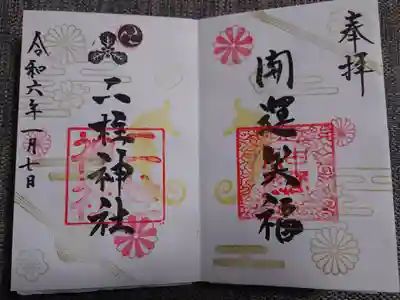 奉拝
開運笑福
二柱神社
令和六年一月七日